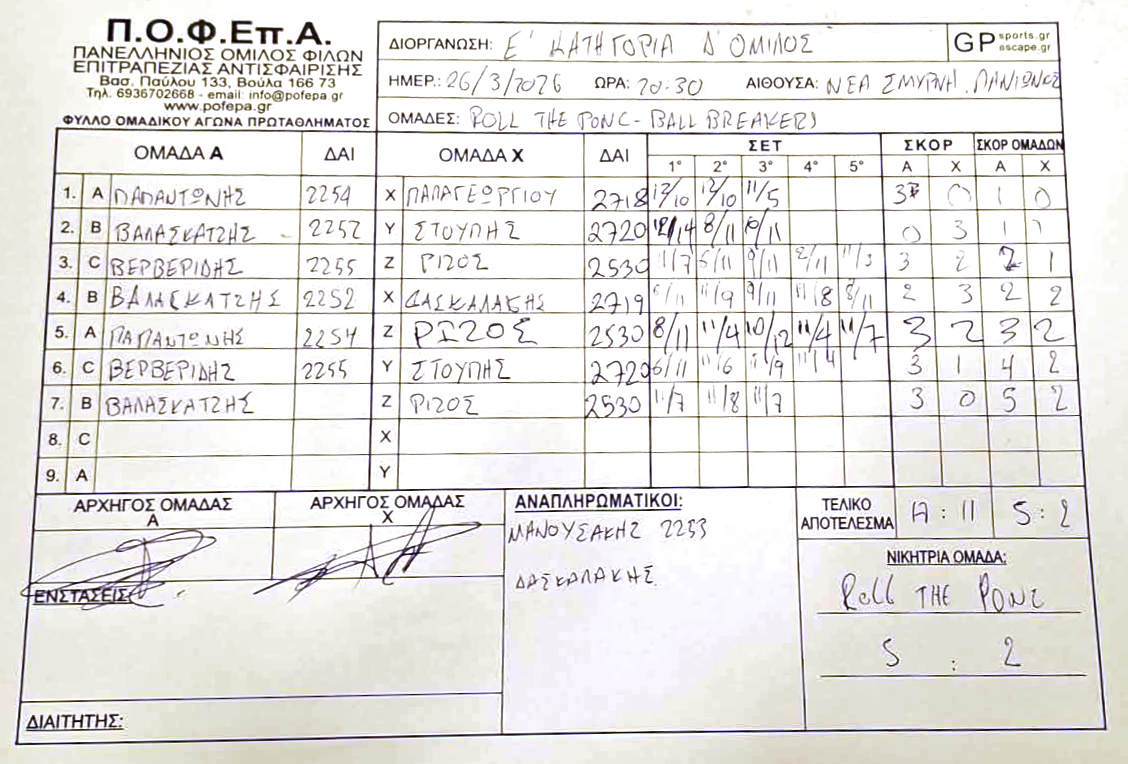 Π.Ο.Φ.Επ.Α.
ΠΑΝΕΛΛΗΝΙΟΣ ΟΜΙΛΟΣ ΦΙΛΩΝ
ΕΠΙΤΡΑΠΕΖΙΑΣ ΑΝΤΙΣΦΑΙΡΙΣΗΣ
Βασ. Παύλου 133, Βούλα 166 73
Τηλ. 6936702668 - email: info@pofepa.gr
www.pofepa.gr
ΦΥΛΛΟ ΟΜΑΔΙΚΟΥ ΑΓΩΝΑ ΠΡΩΤΑΘΛΗΜΑΤΟΣ
ΔΙΟΡΓΑΝΩΣΗ: Ε' ΚΑΤΗΓΟΡΙΑ Δ' ΟΜΙΛΟΣ
GP sports.gr escape.gr
ΗΜΕΡ.: 26/3/2026 ΩΡΑ: 20:30 ΑΙΘΟΥΣΑ: ΝΕΑ ΣΜΥΡΝΗ. ΠΑΝΙΩΝΙΟΣ
ΟΜΑΔΕΣ: ROLL THE PONG - BALL BREAKERS
ΟΜΑΔΑ Α ΔΑΙ ΟΜΑΔΑ Χ ΔΑΙ ΣΕΤ ΣΚΟΡ ΣΚΟΡ ΟΜΑΔΩΝ
1° 2° 3° 4° 5° Α Χ Α Χ
1. Α ΠΑΠΑΝΤΩΝΗΣ 2254 Χ ΠΑΠΑΓΕΩΡΓΙΟΥ 2718 12/10 12/10 11/5 3 0 1 0
2. Β ΒΑΛΑΣΚΑΤΖΗΣ 2252 Υ ΣΤΟΥΠΗΣ 2720 12/14 8/11 0 3 1 1
3. C ΒΕΡΒΕΡΙΔΗΣ 2255 Ζ ΡΙΖΟΣ 2530 11/7 9/11 11/3 3 2 2 1
4. Β ΒΑΛΑΣΚΑΤΖΗΣ 2252 Χ ΔΑΣΚΑΛΑΚΗΣ 2719 11/9 9/11 11/8 8/11 2 3 2 2
5. Α ΠΑΠΑΝΤΩΝΗΣ 2254 Ζ ΡΙΖΟΣ 2530 8/11 11/4 10/12 11/4 11/7 3 2 3 2
6. C ΒΕΡΒΕΡΙΔΗΣ 2255 Υ ΣΤΟΥΠΗΣ 2720 6/11 11/6 11/9 11/4 3 1 4 2
7. Β ΒΑΛΑΣΚΑΤΖΗΣ Ζ ΡΙΖΟΣ 2530 11/7 11/8 11/7 3 0 5 2
8. C Χ
9. Α Υ
ΑΡΧΗΓΟΣ ΟΜΑΔΑΣ Α
ΑΡΧΗΓΟΣ ΟΜΑΔΑΣ Χ
ΑΝΑΠΛΗΡΩΜΑΤΙΚΟΙ:
ΜΑΝΟΥΣΑΚΗΣ 2253
ΔΑΣΚΑΛΑΚΗΣ
ΤΕΛΙΚΟ ΑΠΟΤΕΛΕΣΜΑ 17 : 11 5 : 2
ΝΙΚΗΤΡΙΑ ΟΜΑΔΑ:
Roll THE PONG
5 : 2
ΕΝΣΤΑΣΕΙΣ:
ΔΙΑΙΤΗΤΗΣ: